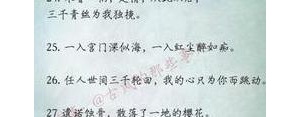 三千青丝为我独挽。
25. 一入宫门深似海，一入红尘醉如痴。
26. 任人世间三千轮回，我的心只为你而跳动。
@古风的那些事
27. 遗诺蚀骨，散落了一地的樱花。